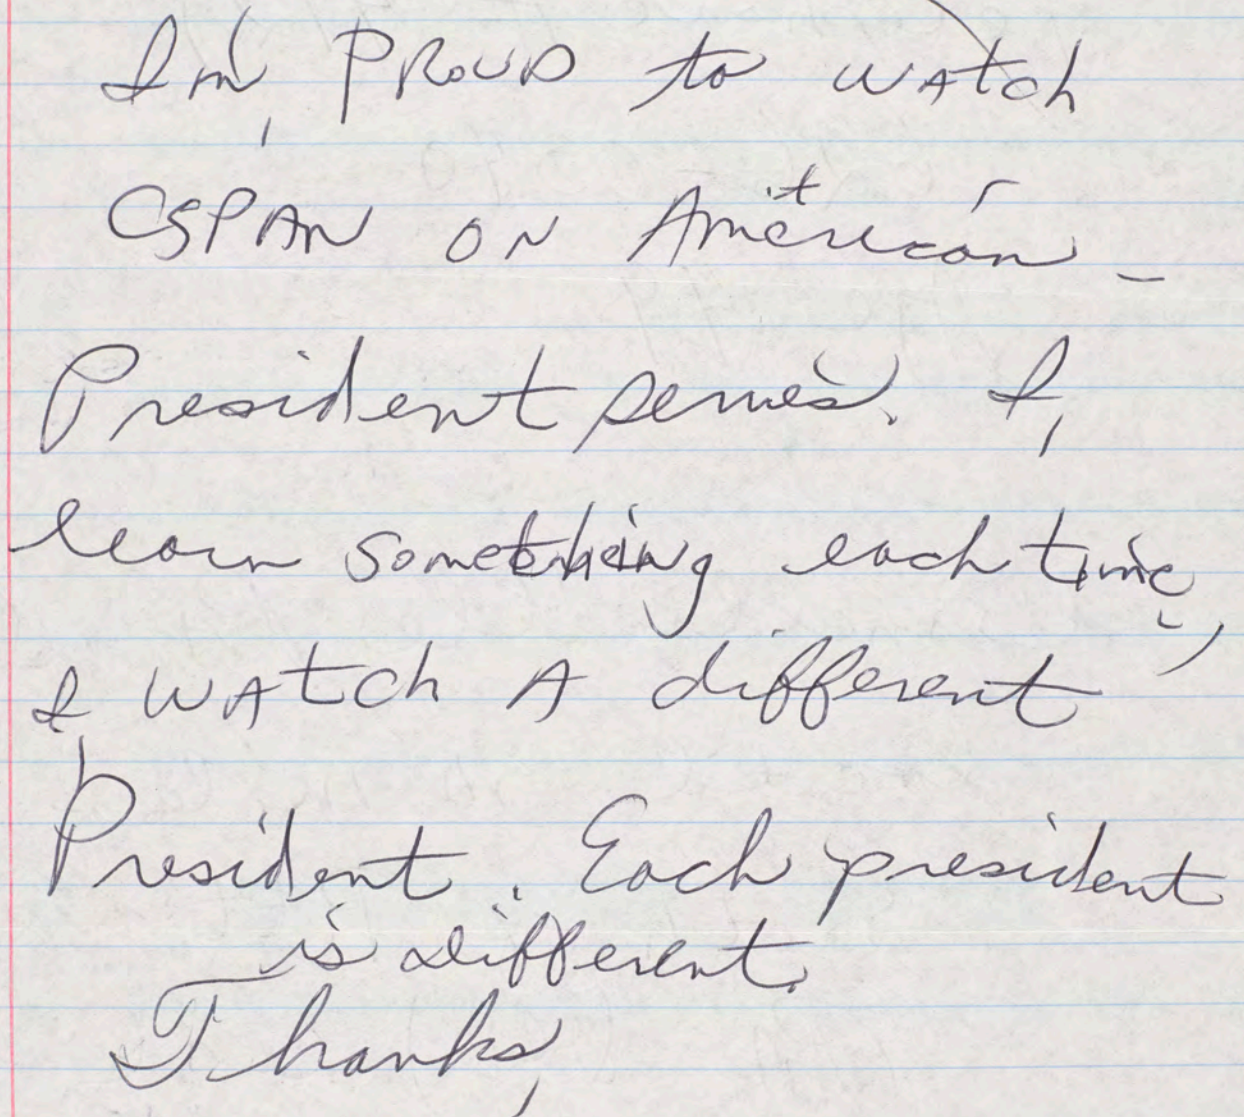 I'm, PROUD to WATCH
CSPAN ON American -
President series. I,
learn something each time,
I WATCH A different
President. Each president
is different.
Thanks,